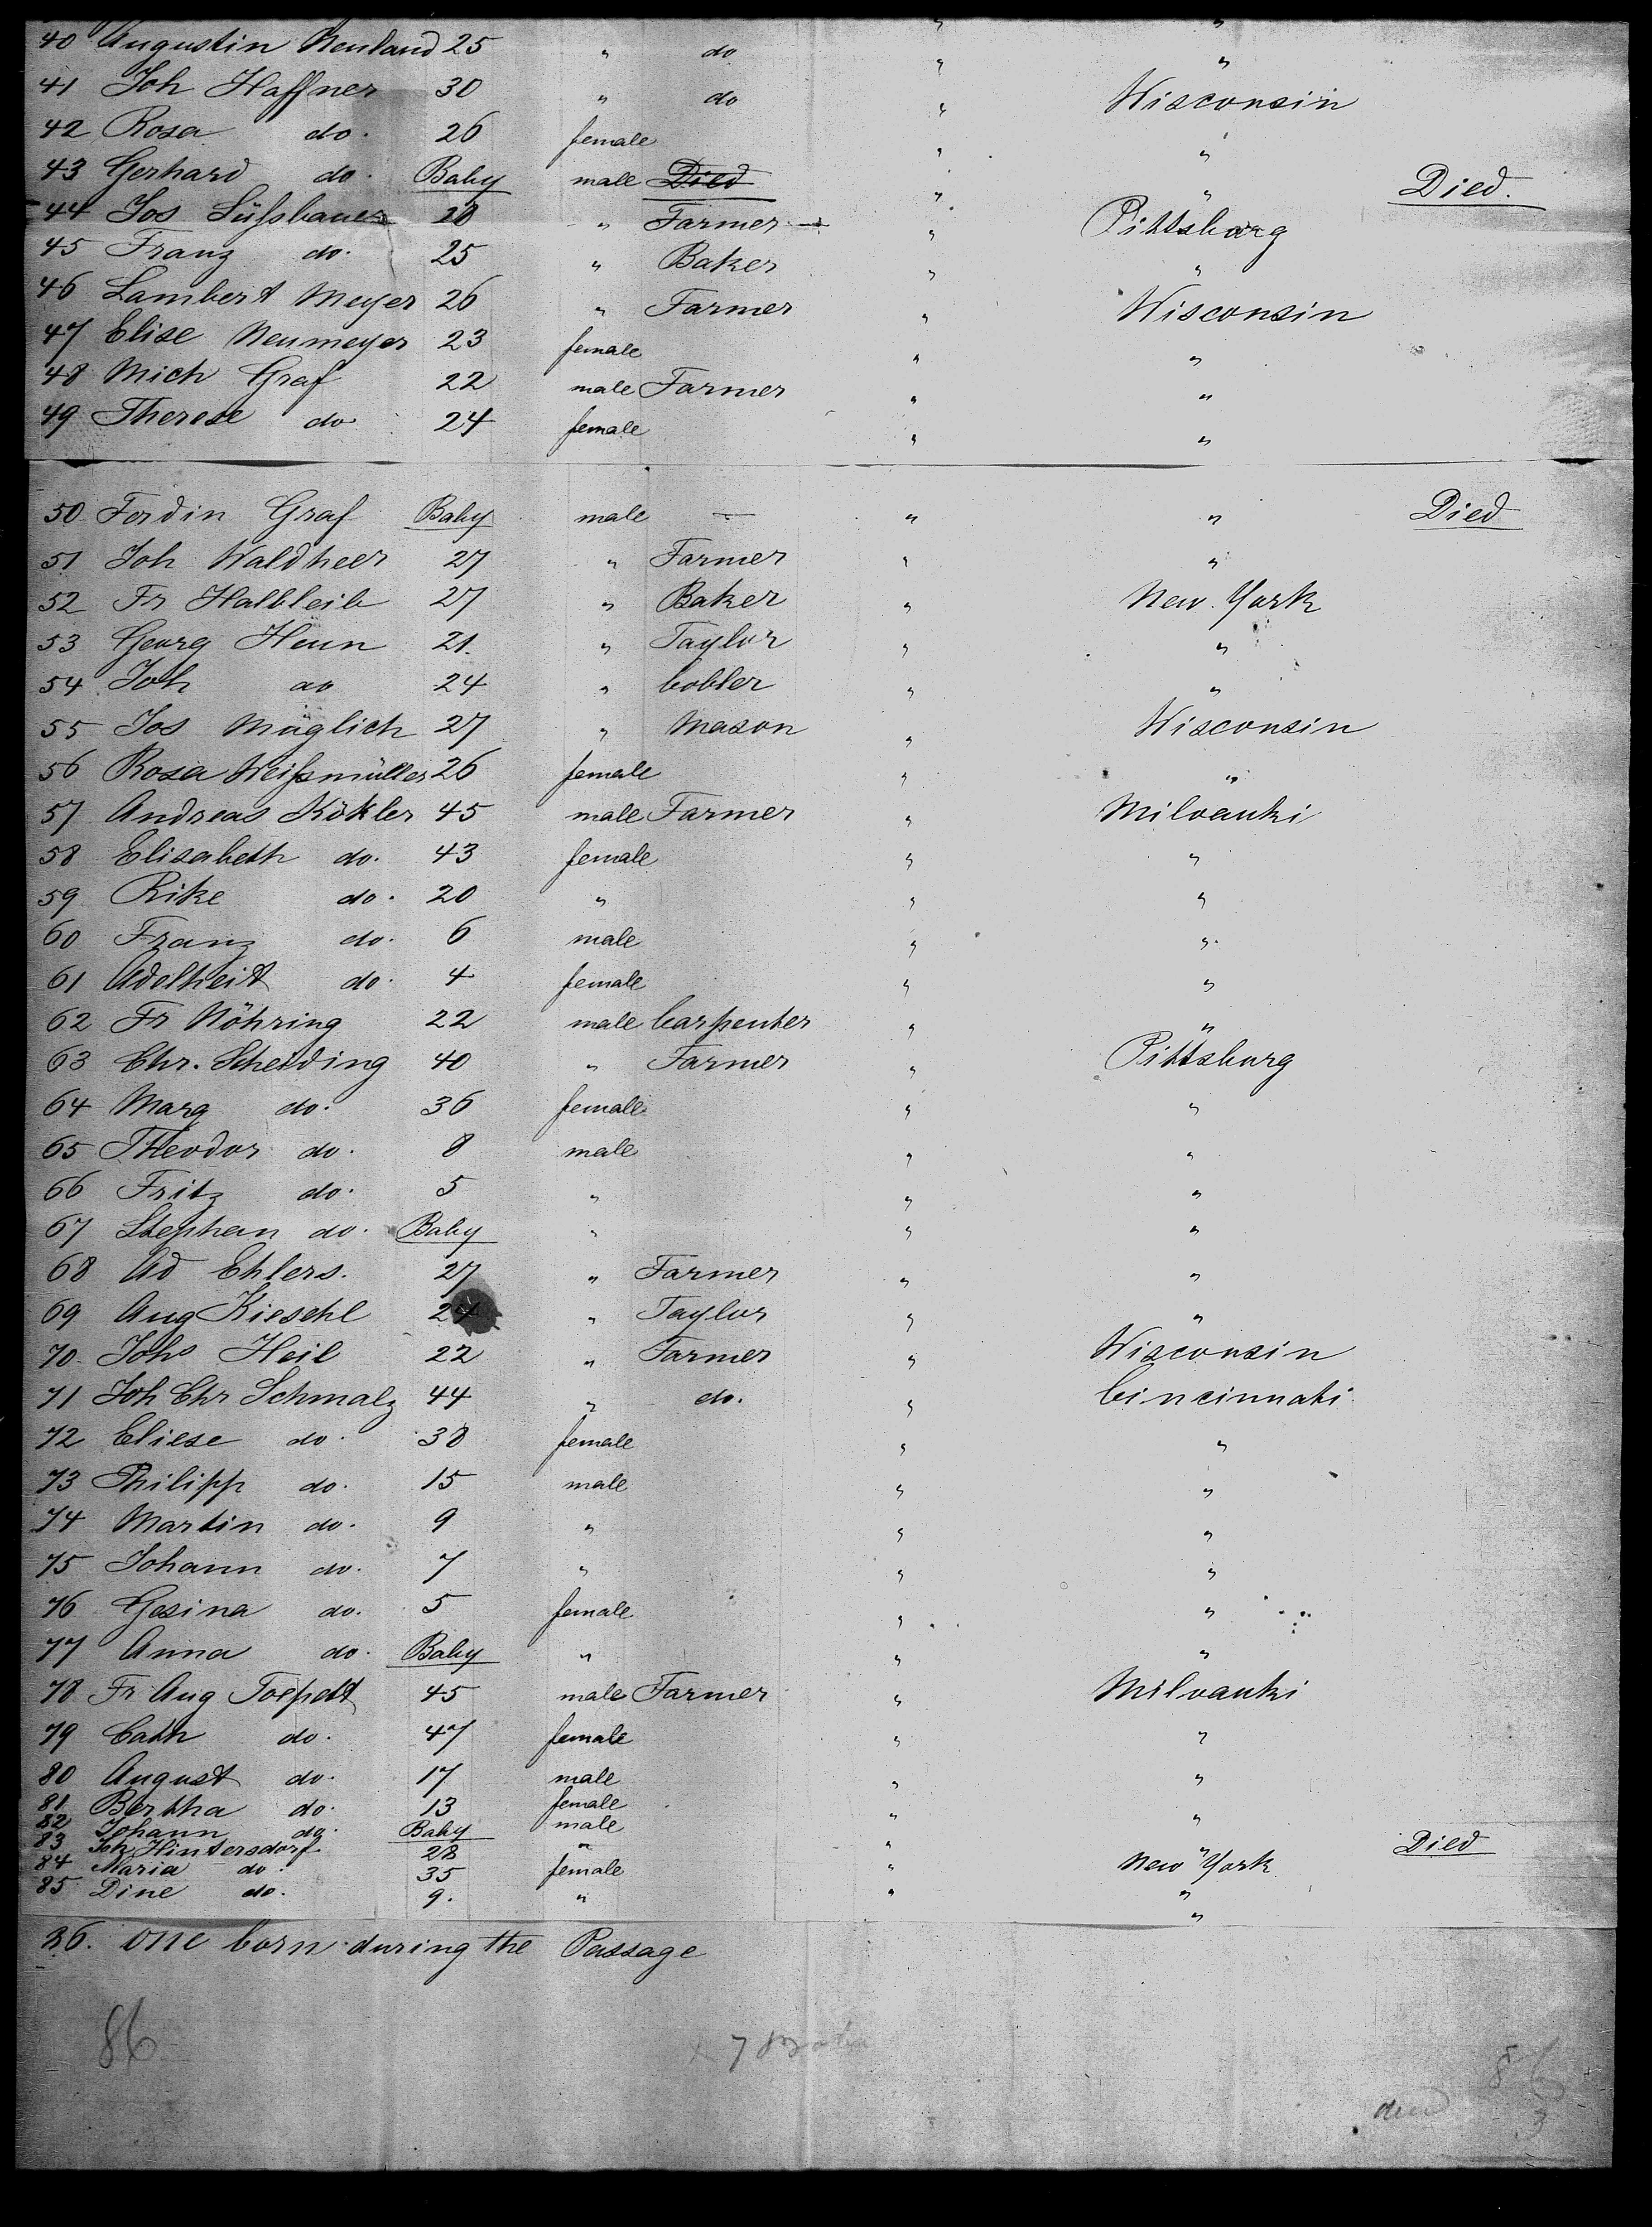 " "
40 Augustin Neuland 25 " do " "
41 Joh Haffner 30 " do " Wisconsin
42 Rosa do. 26 female " "
43 Gerhard do. Baby male Died " " Died.
44 Jos Süßbauer 28 " Farmer " Pittsburg
45 Franz do. 25 " Baker " "
46 Lambert Meyer 26 " Farmer " Wisconsin
47 Elise Neumeyer 23 female " "
48 Mich Graf 22 male Farmer " "
49 Therese do 24 female " "
50 Ferdin Graf Baby male — " " Died
51 Joh Waldheer 27 " Farmer " "
52 Fr Halbleib 27 " Baker " New York
53 Georg Heun 21. " Taylor " "
54 Joh do 24 " Cobler " "
55 Jos Müglich 27 " Mason " Wisconsin
56 Rosa Weißmüller 26 female " "
57 Andreas Kökler 45 male Farmer " Milvauki
58 Elisabeth do. 43 female " "
59 Rike do. 20 " " "
60 Franz do. 6 male " "
61 Adelheit do. 4 female " "
62 Fr Nöhring 22 male Carpenter " "
63 Chr. Scheiding 40 " Farmer " Pittsburg
64 Marg do. 36 female " "
65 Theodor do. 8 male " "
66 Fritz do. 5 " " "
67 Stephan do. Baby " " "
68 Ad Ehlers. 27 " Farmer " "
69 Aug Kieschl 24 " Taylor " "
70 Johs Heil 22 " Farmer " Wisconsin
71 Joh Chr Schmalz 44 " do. " Cincinnati
72 Eliese do. 38 female " "
73 Philipp do. 15 male " "
74 Martin do. 9 " " "
75 Johann do. 7 " " "
76 Gesina do. 5 female " "
77 Anna do. Baby " " "
78 Fr Aug Toepelt 45 male Farmer " Milvauki
79 Cath do. 47 female " "
80 August do. 17 male " "
81 Bertha do. 13 female " "
82 Johann do. Baby male " " Died
83 Joh Hintersdorf 28 " " New York
84 Maria do. 35 female " "
85 Dine do. 9. " "
86. one born during the Passage
86
7
86
3